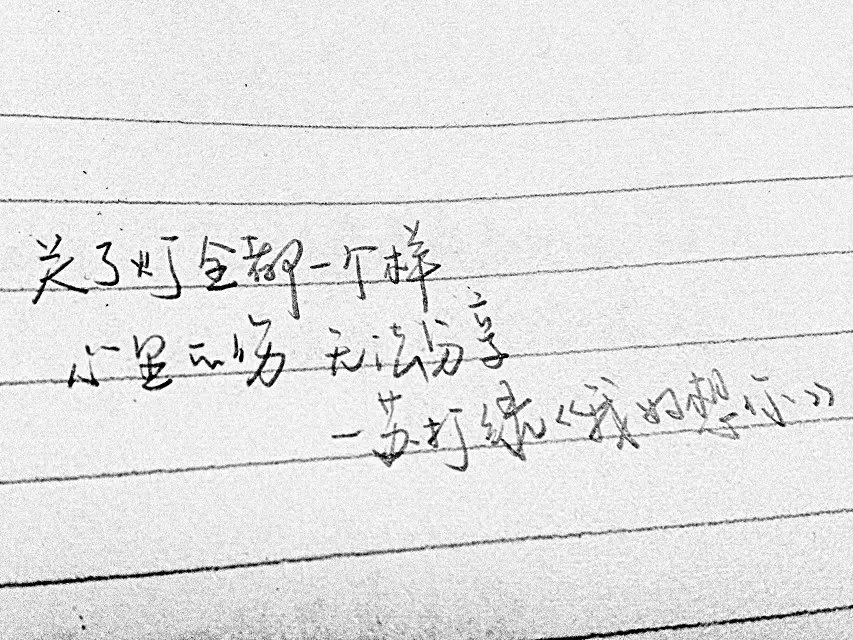 关了灯全都一个样
心里的伤 无法分享
—苏打绿《我好想你》